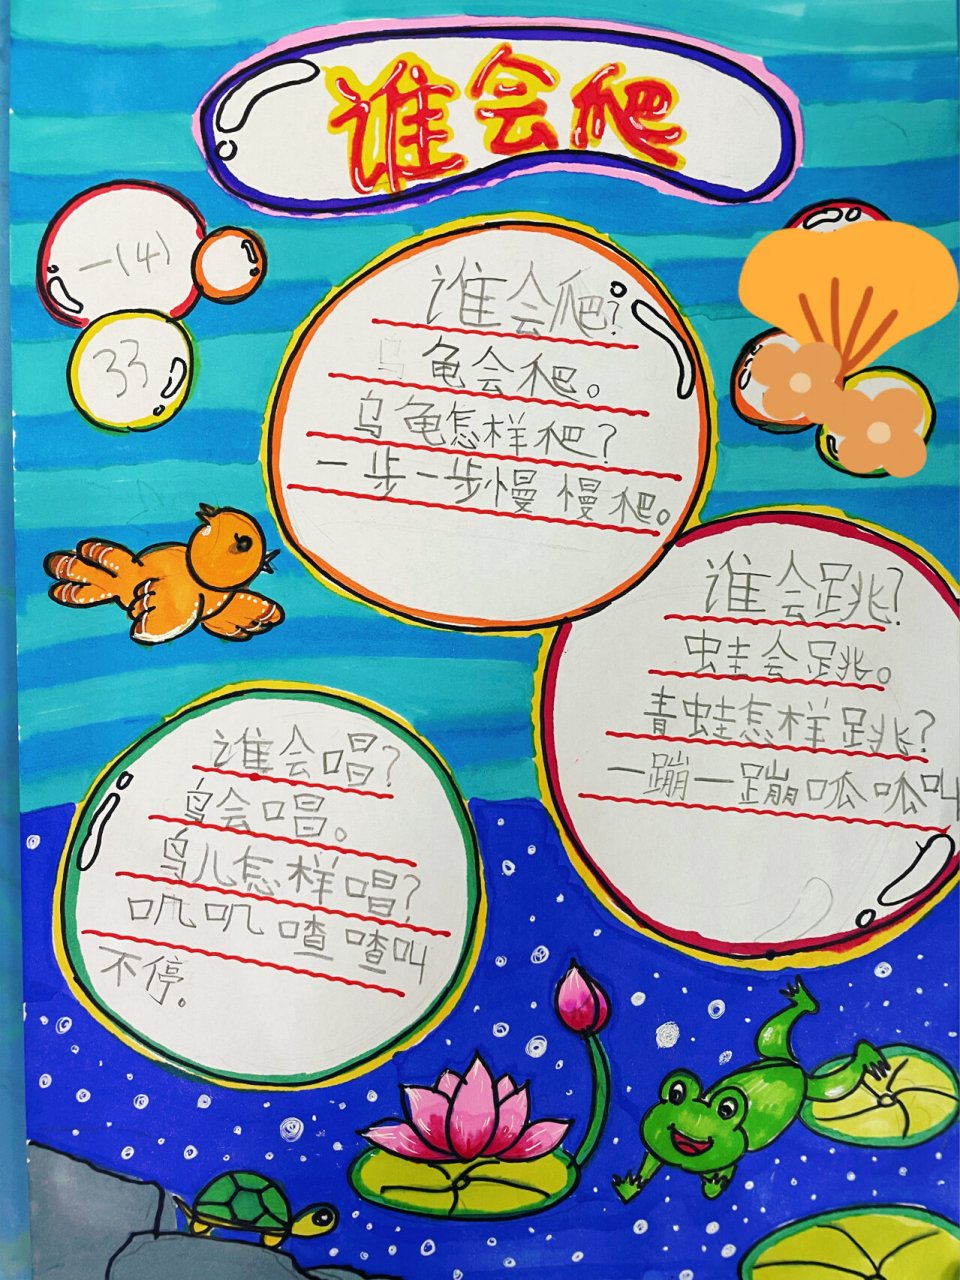 谁会爬
一(4)
33
谁会爬?
乌龟会爬。
乌龟怎样爬?
一步一步慢慢爬。
谁会跳?
虫蛙会跳。
青蛙怎样跳?
一蹦一蹦呱呱叫
谁会唱?
鸟会唱。
鸟儿怎样唱?
叽叽喳喳叫
不停。